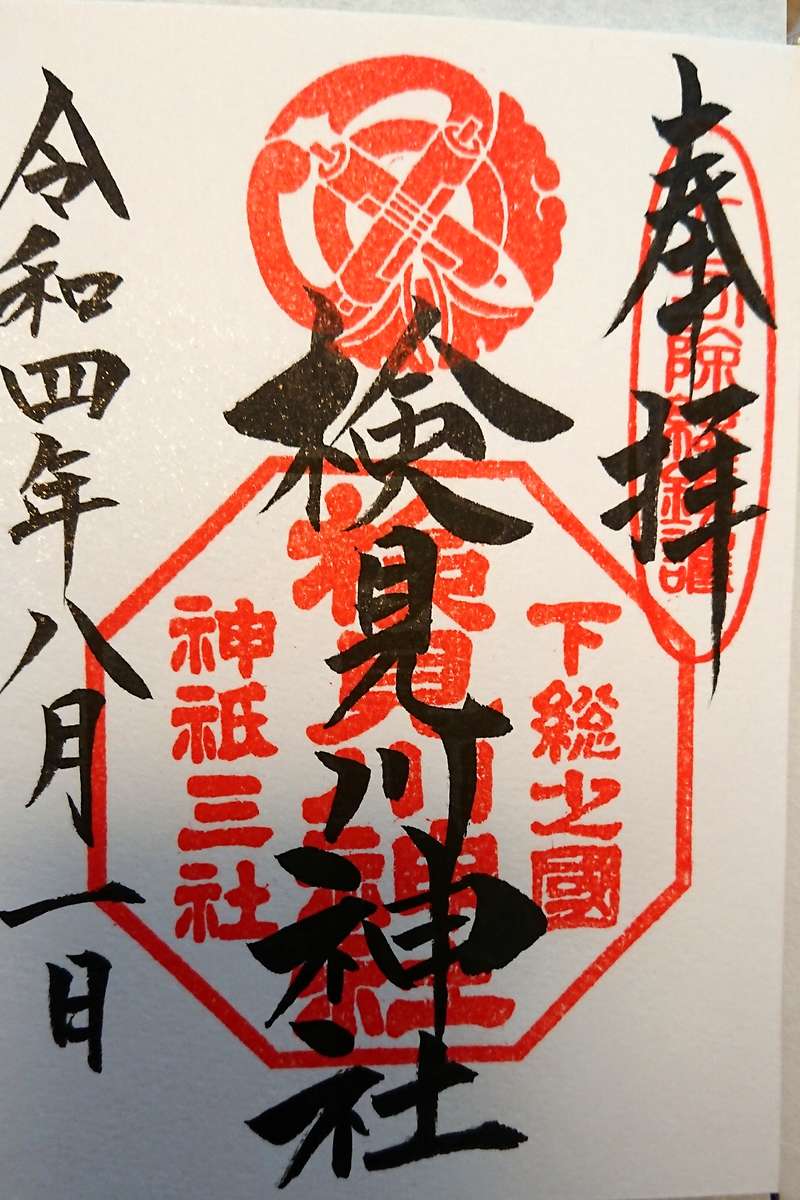 奉拝
下総之國
検見川神社
検見川神社
神祇三社
令和四年八月一日